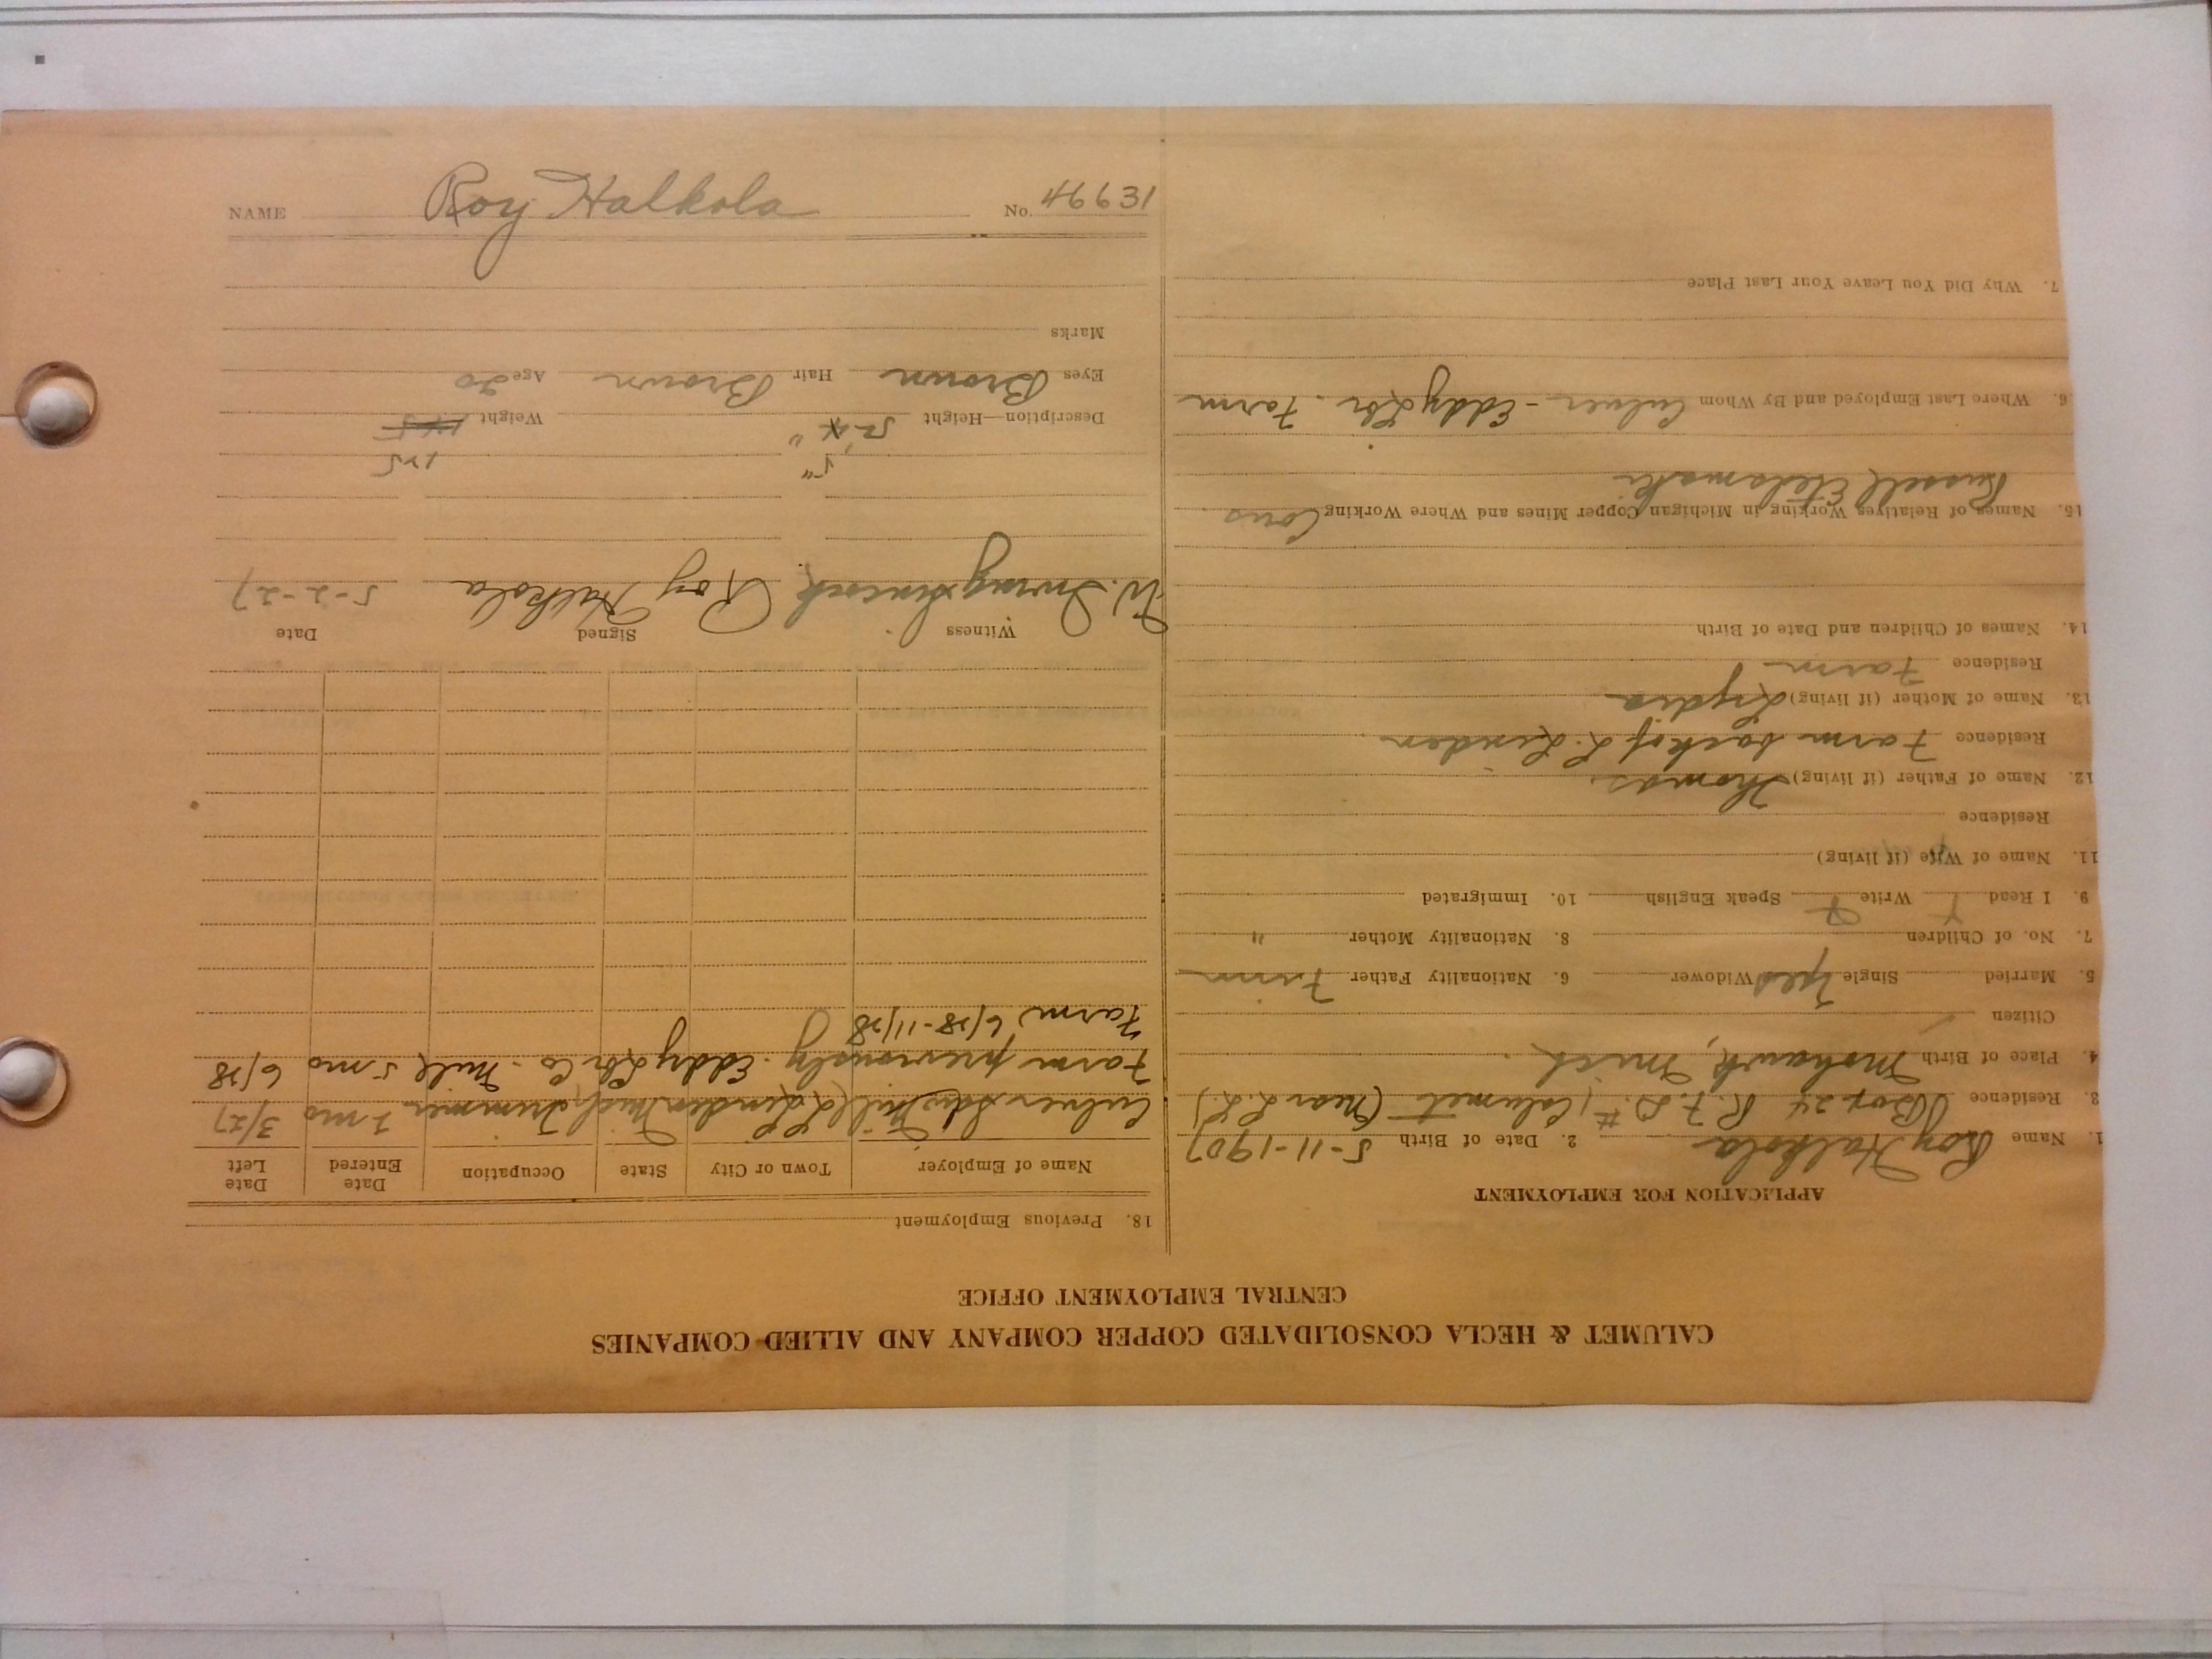 NAME Roy Halkola No. 46631
CALUMET & HECLA CONSOLIDATED COPPER COMPANY AND ALLIED COMPANIES
CENTRAL EMPLOYMENT OFFICE
APPLICATION FOR EMPLOYMENT
1. Name Roy Halkola 2. Date of Birth 5-11-1907
3. Residence Box 24 R.F.D. #1 Calumet (Near L.L.)
4. Place of Birth Mohawk, Mich.
Citizen
5. Married Single Yes Widower 6. Nationality Father Finn
7. No. of Children 8. Nationality Mother "
9. I Read Write Speak English 10. Immigrated
11. Name of Wife (if living)
Residence
12. Name of Father (if living) Thomas.
Residence Farm back of L. Linden
13. Name of Mother (if living) Lydia
Residence Farm
14. Names of Children and Date of Birth
15. Names of Relatives Working in Michigan Copper Mines and Where Working Cous
Russell
6. Where Last Employed and By Whom Culver - Eddy Lbr. Farm
7. Why Did You Leave Your Last Place
18. Previous Employment
Name of Employer Town or City State Occupation Date Entered Date Left
Culver Saw Mill L. Linden Mich. Trimmer 2 mo 3/27
Farm previously. Eddy Lbr Co. Mill 5 mo 6/28
Farm 6/28-11/28
Witness Signed Date
W. Roy Halkola 5-2-27
5" 125
Description—Height 5' 4" Weight 145
Eyes Brown Hair Brown Age 20
Marks